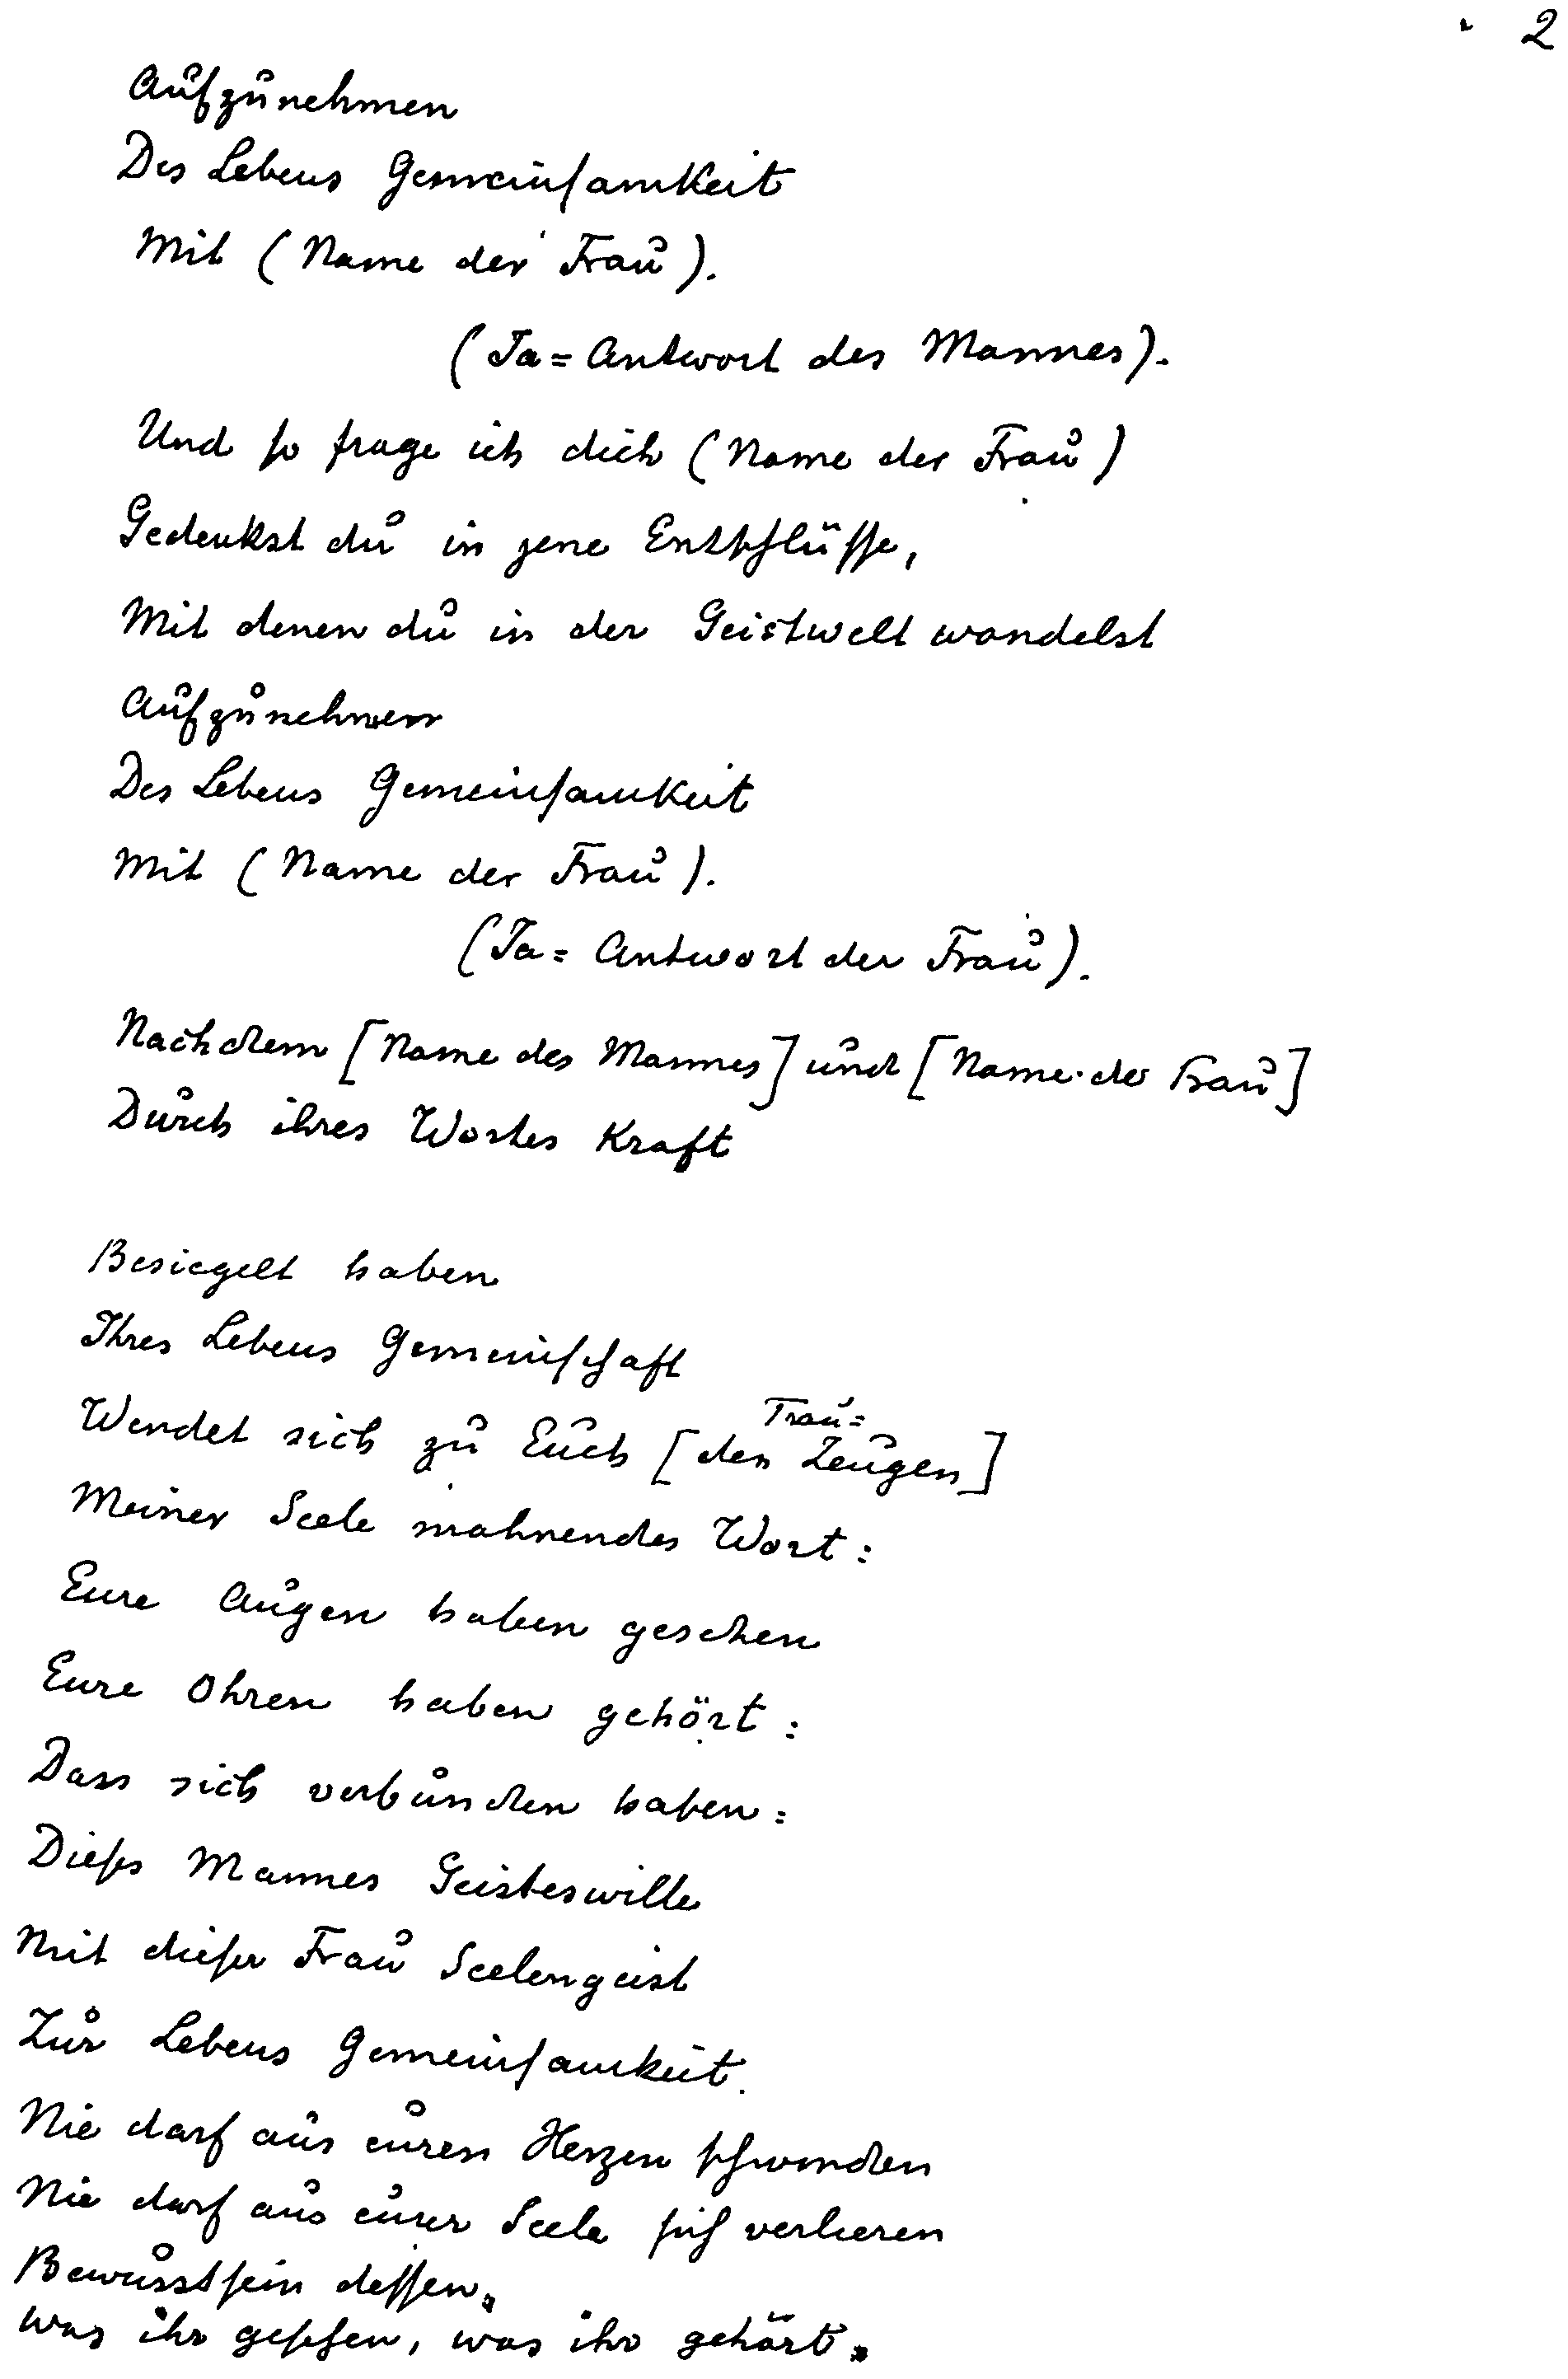 2
Aufzunehmen
Des Lebens Gemeinsamkeit
Mit (Name der Frau).
(Ja = Antwort des Mannes).
Und so frage ich dich (Name der Frau)
Gedenkst du in jene Entschlüsse,
Mit denen du in der Geistwelt wandelst
Aufzunehmen
Des Lebens Gemeinsamkeit
Mit (Name der Frau).
(Ja = Antwort der Frau).
Nachdem [Name des Mannes] und [Name der Frau]
Durch ihres Wortes Kraft
Besiegelt haben
Ihres Lebens Gemeinschaft
Wendet sich zu Euch [den Trau= Zeugen]
Meiner Seele mahnendes Wort:
Eure Augen haben gesehen
Eure Ohren haben gehört:
Dass sich verbunden haben:
Dieses Mannes Geisteswille
Mit dieser Frau Seelengeist
Zur Lebens Gemeinsamkeit.
Nie darf aus euren Herzen schwinden
Nie darf aus eurer Seele sich verlieren
Bewusstsein dessen,
was ihr gesehen, was ihr gehört.